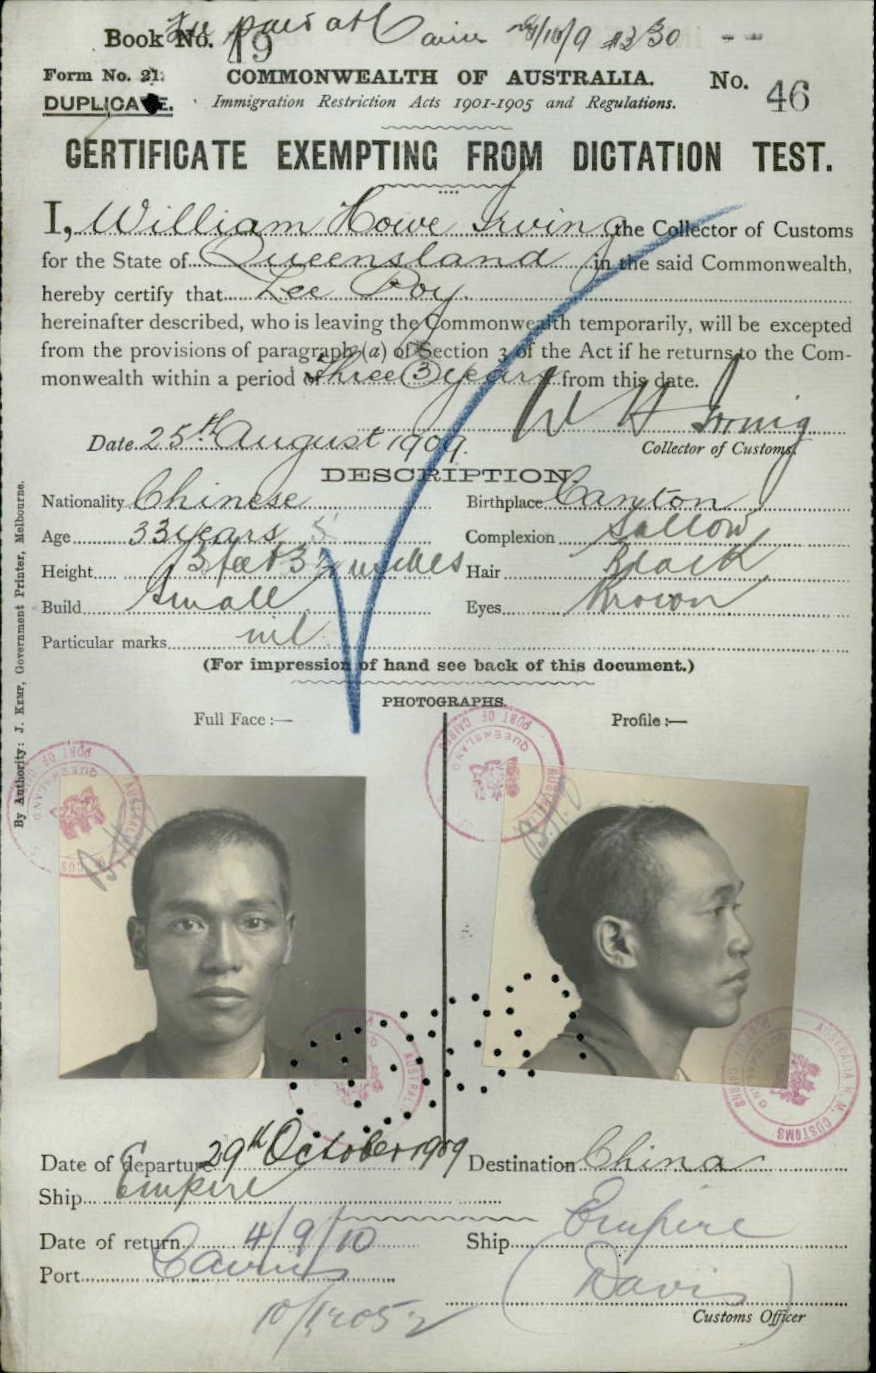 Book No. 19
Form No. 21.
COMMONWEALTH OF AUSTRALIA.
No. 46
DUPLICATE.
Immigration Restriction Acts 1901-1905 and Regulations.
CERTIFICATE EXEMPTING FROM DICTATION TEST.
I, William Howe Irving the Collector of Customs
for the State of Queensland in the said Commonwealth,
hereby certify that Lee Poy
hereinafter described, who is leaving the Commonwealth temporarily, will be excepted
from the provisions of paragraph (a) of Section 3 of the Act if he returns to the Com-
monwealth within a period of three (3) years from this date.
W H Irving
Date 25th August 1909.
Collector of Customs.
DESCRIPTION.
Nationality Chinese
Birthplace Canton
Age 33 years
Complexion Sallow
Height 5 feet 3½ inches
Hair Black
Build Small
Eyes Brown
Particular marks nil
(For impression of hand see back of this document.)
PHOTOGRAPHS.
Full Face :—
Profile :—
By Authority: J. Kemp, Government Printer, Melbourne.
Date of departure 29th October 1909
Destination China
Ship Empire
Date of return 4/9/10
Ship Empire
Port Cairns
Davis
Customs Officer